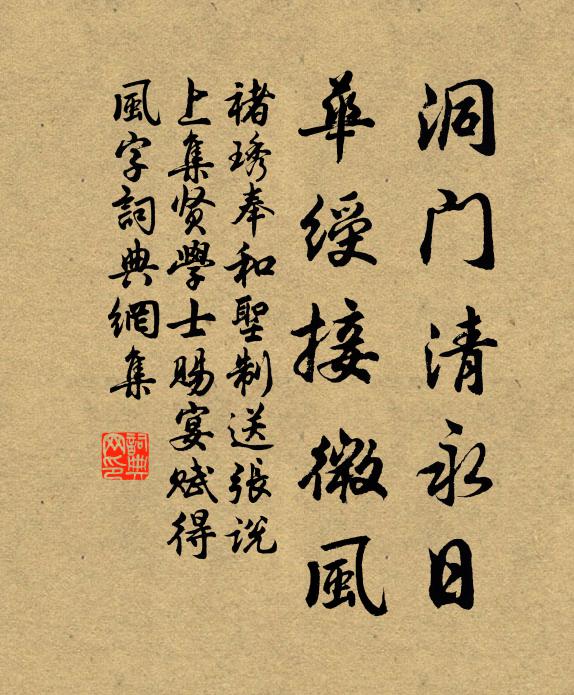 洞门清永日
華绶接微風
褚琇奉和聖制送張説
上集贤學士賜宴赋得
風字詞典網集
詞典
网印